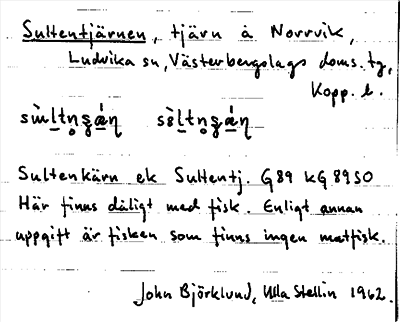 Sultentjärnen, tjärn å Norrvik,
Ludvika sn, Västerbergslags doms. tg,
Kopp. l.
Sultenkärn ek Sultentj. G89 KG 8950
Här finns dåligt med fisk. Enligt annan
uppgift är fisken som finns ingen matfisk.
John Björklund, Ulla Stellin 1962.